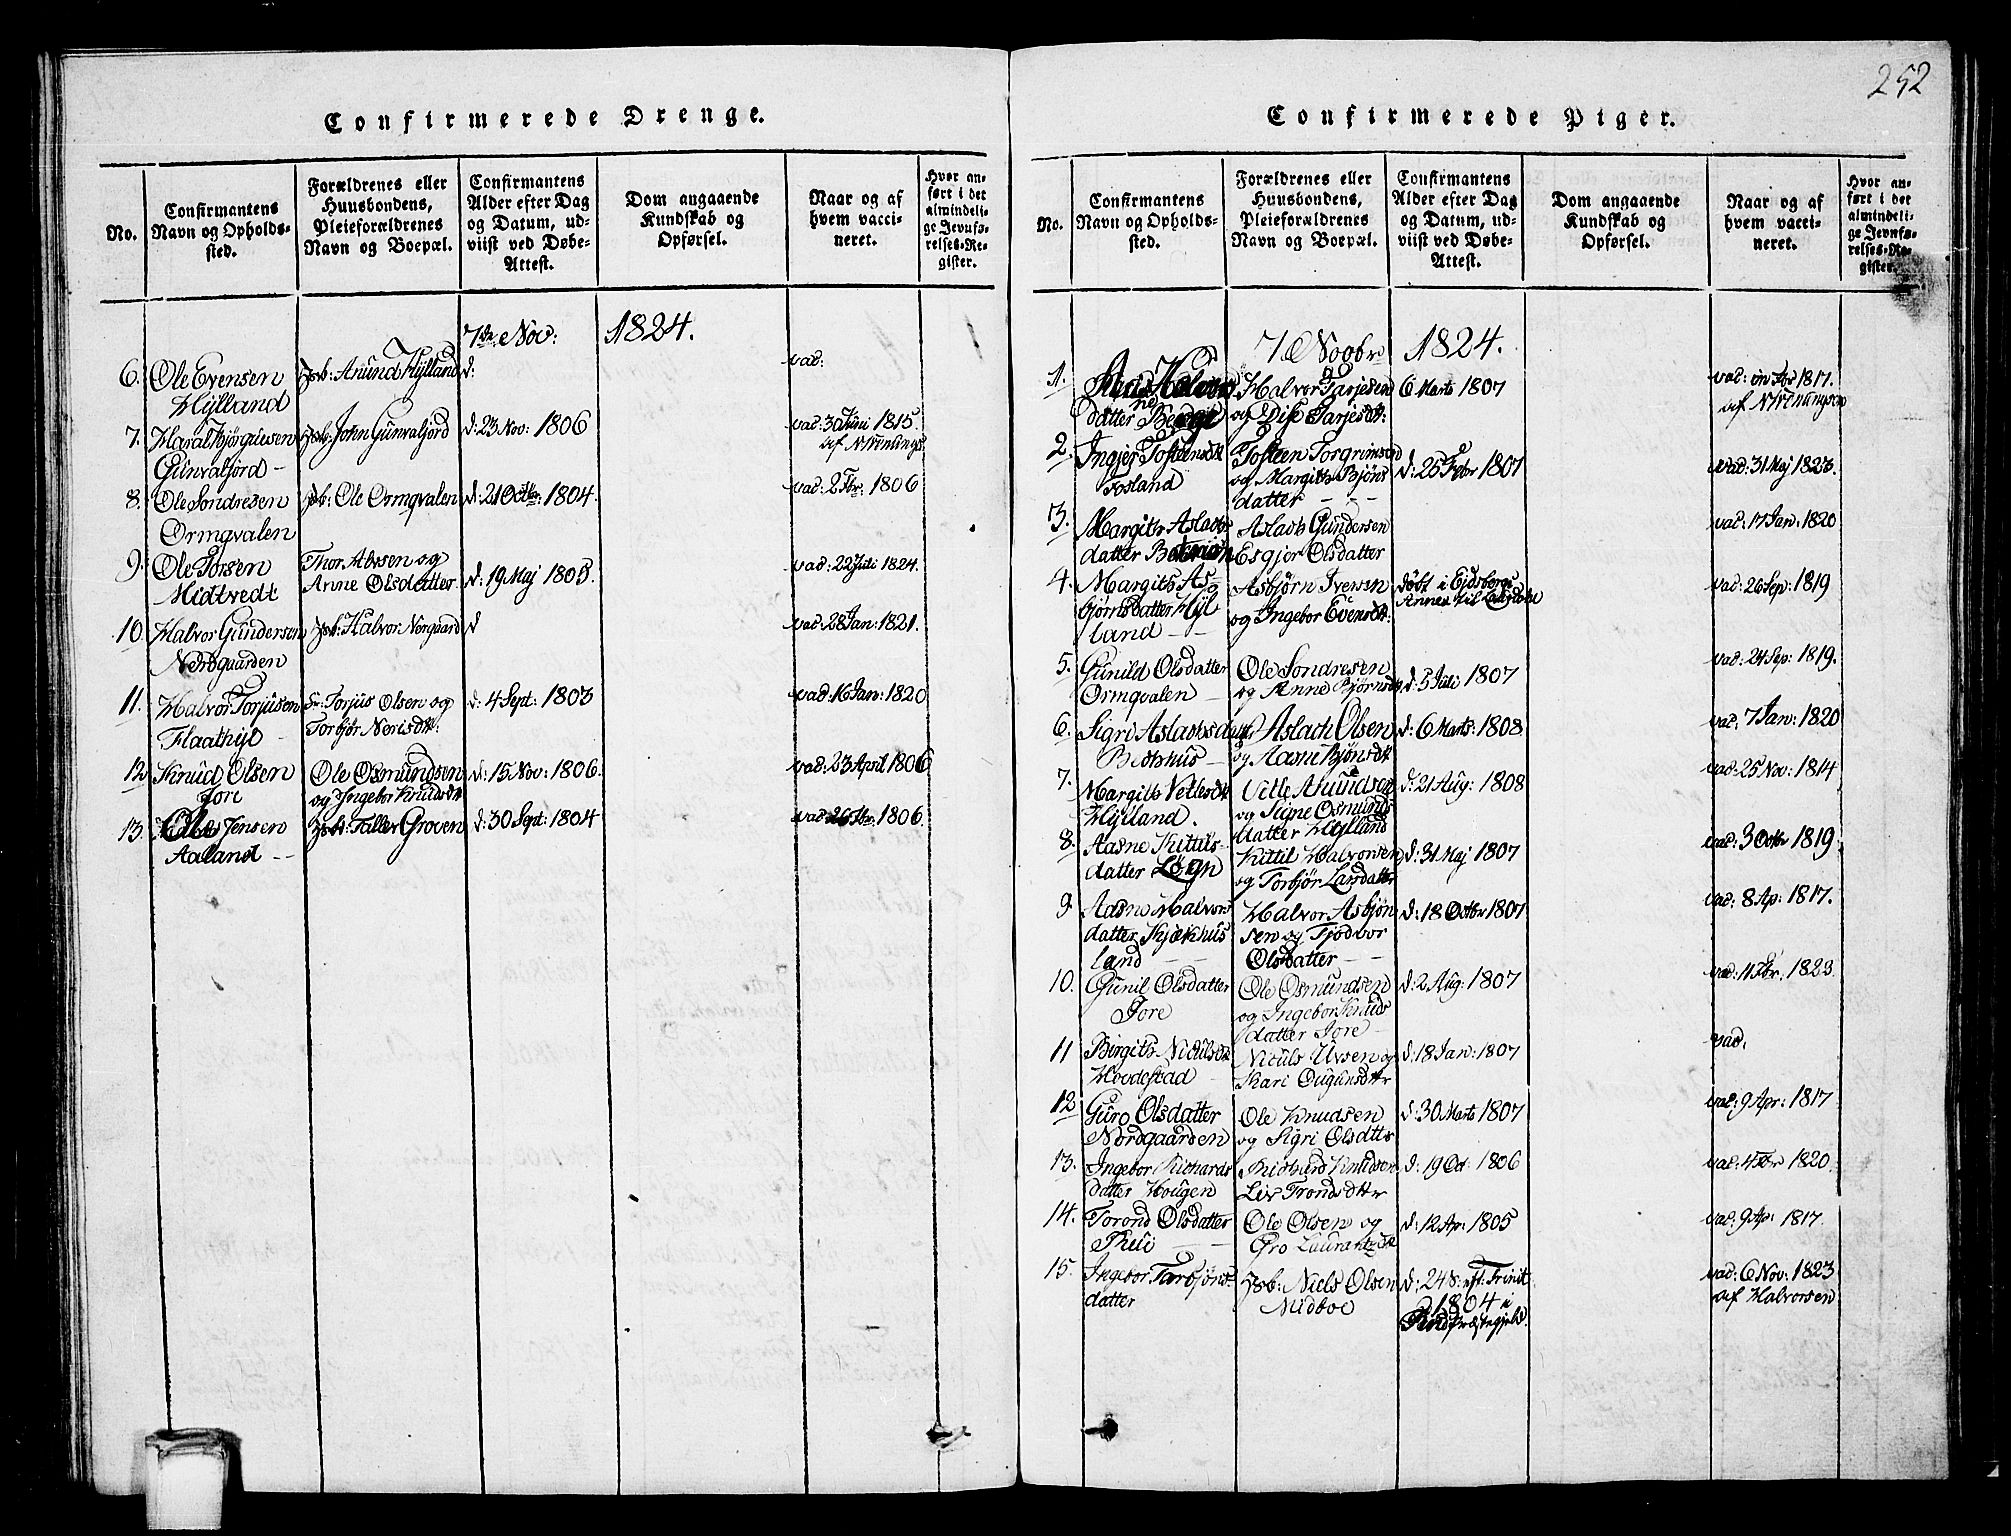 252
Confirmerede Drenge.
No.
Confirmantens
Navn og Opholds-
sted.
Forældrenes eller
Huusbondens,
Pleieforældrenes
Navn og Boepæl.
Confirmantens
Alder efter Dag
og Datum, ud-
viist ved Døbe-
Attest.
Dom angaaende
Kundskab og
Opførsel.
Naar og af
hvem vacci-
neret.
Hvor an-
ført i det
almindeli-
ge Jevnfø-
relses-Re-
gister.
7de Nov: 1824.
6. Ole Evensen
Hylland
Hsb: Anund Hylland
d:
vac:
7. Haral Bjørguesen
Gunvaljord -
Hsb: John Gunvaljord
d: 23 Nov: 1806
vac: 30 Juni 1815.
af
8. Ole Sondresen
Ormqvalen
Hsb: Ole Ormqvalen
d: 21 Octbr: 1804.
vac: 2 Fbr: 1806
9. Ole Torsen
Midtvedt
Thor Alvsen og
Anne Olsdatter
d: 19 Maj 1805.
vac: 22 Juli 1824.
10. Halvor Gundersen
Nordgaarden
Hsb: Halvor Norgaard
d
vac: 28 Jan: 1821.
11. Halvor Torjusen
Flaathyl -
Torjus Olsen og
Torbjør Nerisdtr:
d: 4 Sept: 1803
vac: 16 Jan: 1820
12 Knud Olsen
Jore
Ole Osmundsen
og Ingebor Knudsdtr
d: 15 Nov: 1806.
vac: 23 April 1806
13. Jensen
Aaland - -
Hsb: Taller Groven
d: 30 Sept: 1804
vac: 26 Fbr: 1806.
Confirmerede Piger.
No.
Confirmantens
Navn og Opholds-
sted.
Forældrenes eller
Huusbondens,
Pleieforældrenes
Navn og Boepæl.
Confirmantens
Alder efter Dag
og Datum, ud-
viist ved Døbe-
Attest.
Dom angaaende
Kundskab og
Opførsel.
Naar og af
hvem vacci-
neret.
Hvor an-
ført i det
almindeli-
ge Jevnfø-
relses-Re-
gister.
7 Novbr 1824.
1. Halvors
datter
Halvor Tarjesen
og Dise Tarjesdtr:
6 Marts 1807
vac: Fbr 1817.
af
2. Ingjer Tosteensdtr
Fosland
Tosteen Torgrimsen
og Margith Bjørns
datter - - -
d: 25 Febr 1807
vac: 31 Maj 1823.
3. Margith Aslachs
datter
Aslach Gundersen
Esgjer Olsdatter
vac: 17 Jan: 1820
4. Margith As-
bjørnsdatter Hyl
land - -
Asbjørn Iversen
og Ingebor Evensdtr:
døbt i Eidsbergs
Annex til
vac: 26 Sep: 1819
5. Gunild Olsdatter
Ormqvalen -
Ole Sondresen
og Anne Bjørnsdtr
d: 5 Juli 1807
vac: 24 Sep: 1819.
6. Sigri Aslachsdatter
Aslach Olsen
og Aasne Bjønsdtr
d: 6 Marts: 1808
vac: 7 Jan: 1820
7. Margith Vetlesdtr
Hylland.
Vetle Anundsen
og Signe Osmunds
datter Hylland
d: 21 Aug: 1808
vac: 25 Nov: 1814
8. Aasne Kituls-
datter Løgn
Kittil Halvorsen
og Torbjør Larsdatter
d: 31 Maj 1807
vac: 3 Octbr 1819.
9. Aasne Halvors
datter Kjækhus
land - -
Halvor Asbjøn
sen og Tjodvor
Olsdatter - -
d: 18 Octbr 1807
vac: 8 Ap: 1817.
10. Gunil Olsdatter
Jore
Ole Osmundsen
og Ingebor Knuds
datter Jore -
d: 2 Aug: 1807
vac: 11 Fbr. 1823.
11 Birgith Niculsdtr
Hovdestad -
Niculs Alvsen og
Kari
d: 18 Jan: 1807
vac.
12 Guro Olsdatter
Nordgaarden
Ole Knudsen
og Sigri Olsdtts
d: 30 Marts 1807
vac: 9 Apr: 1817
13. Ingebor Richards
datter Hougen
Richard Knudsen
Liv Trondsdttr
d: 19 Oct: 1806
vac: 4 Fbr 1820.
14. Torond Olsdatter
- -
Ole Olsen og
Gro Laurantzdtr
d: 12 Ap: 1805
vac: 9 Ap: 1817.
15. Ingebor Tarbjøns
datter
Hsb: Niels Olsen
Midboe
d: 24 S: eft: Trinit
1804 i
Præstegjeld.
vac: 6 Nov: 1823
af Halvorsen